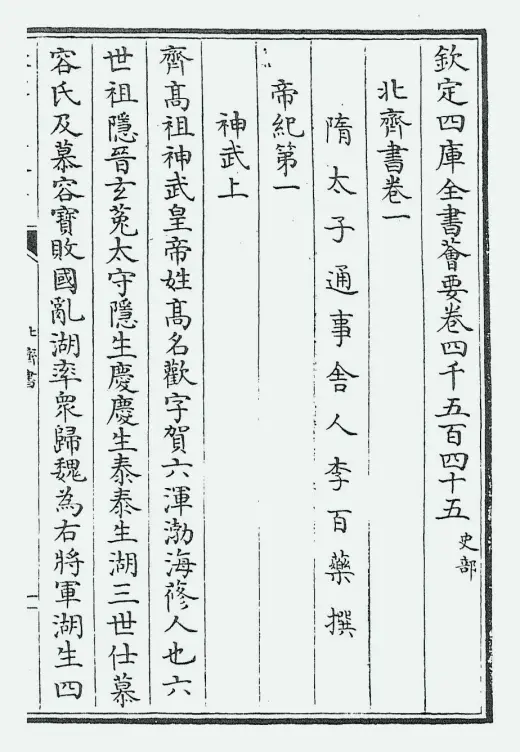 欽定四庫全書薈要卷四千五百四十五 史部
北齊書卷一
隋太子通事舍人李百藥撰
帝紀第一
神武上
齊高祖神武皇帝姓高名歡字賀六渾渤海蓨人也六
世祖隱晉玄菟太守隱生慶慶生泰泰生湖三世仕慕
容氏及慕容寶敗國亂湖率衆歸魏為右將軍湖生四
北齊書